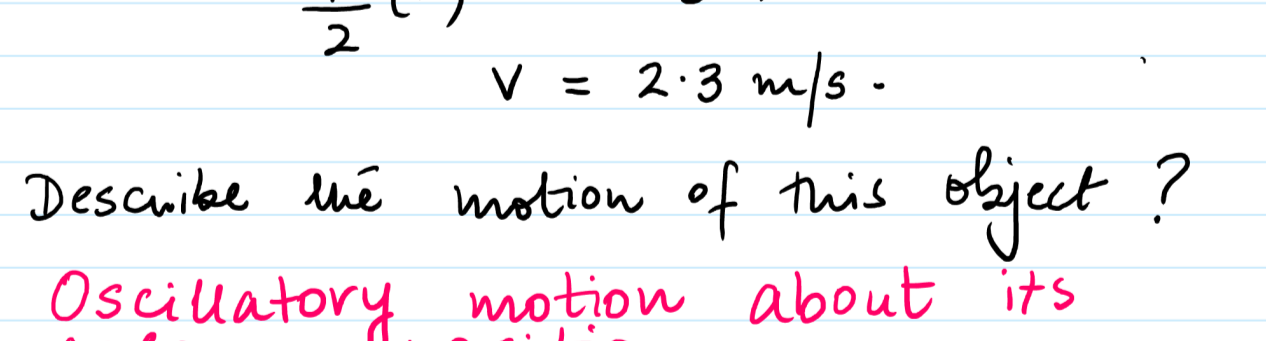 2 ( )
v = 2.3 m/s.
Describe the motion of this object?
Oscillatory motion about its